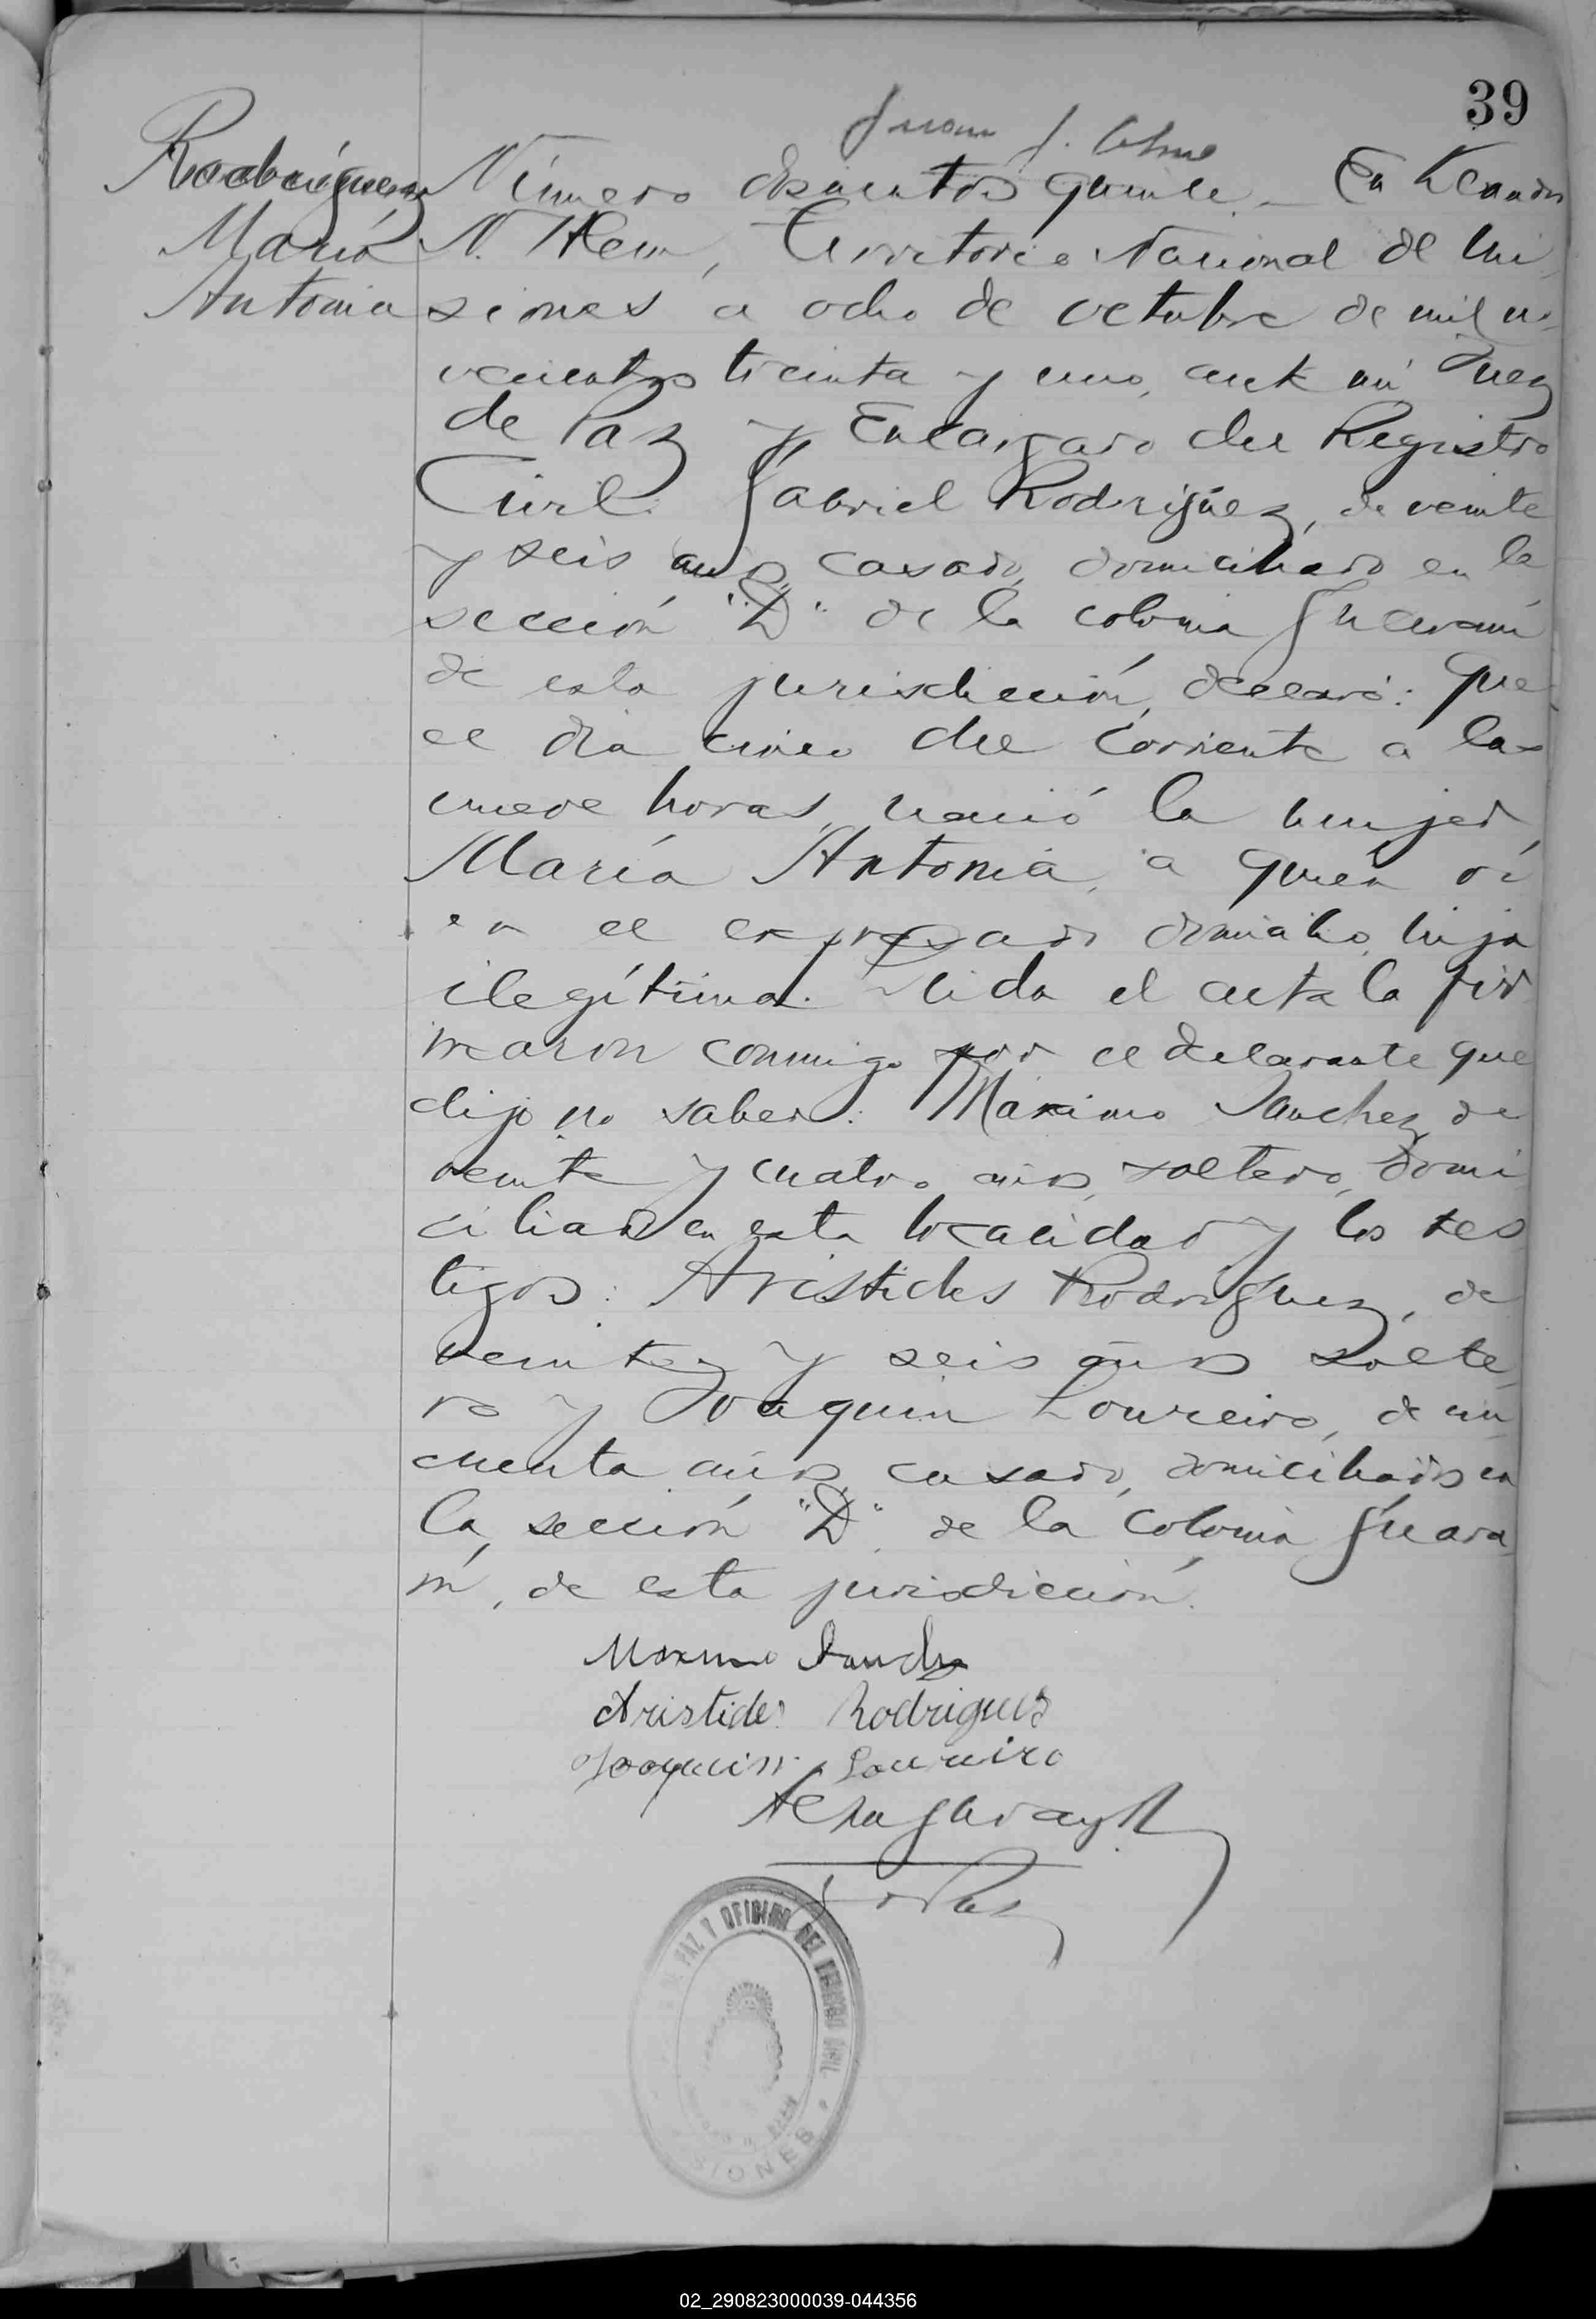 39
Juan J.
Rodríguez
María
Antonia
Número doscientos quince.- En Leandro
N. Alem, Territorio Nacional de Mi
siones a ocho de octubre de mil no
vecientos treinta y uno, ante mí Juez
de Paz y Encargado del Registro
Civil: Gabriel Rodríguez, de veinte
y seis años, casado, domiciliado en la
sección "D" de la colonia Guaraní
de esta jurisdicción, declaró: Que
el día cinco del corriente a las
nueve horas, nació la mujer
María Antonia, a quién ví
en el expresado domicilio, hija
ilegítima. Leida el acta la fir
maron conmigo por el declarante que
dijo no saber: Máximo Sanchez, de
veinte y cuatro años, soltero, domi
ciliado en esta localidad y los tes
tigos: Aristides Rodríguez, de
veinte y seis años solte
ro y Joaquin Loureiro, de cin
cuenta años, casado, domiciliados en
la sección "D" de la colonia Guara
ní, de esta jurisdicción.
Maximo Sanchez
Aristides Rodriguez
Joaquin Loureiro
DE PAZ Y OFICINA DEL REGISTRO CIVIL
MISIONES
02_290823000039-044356